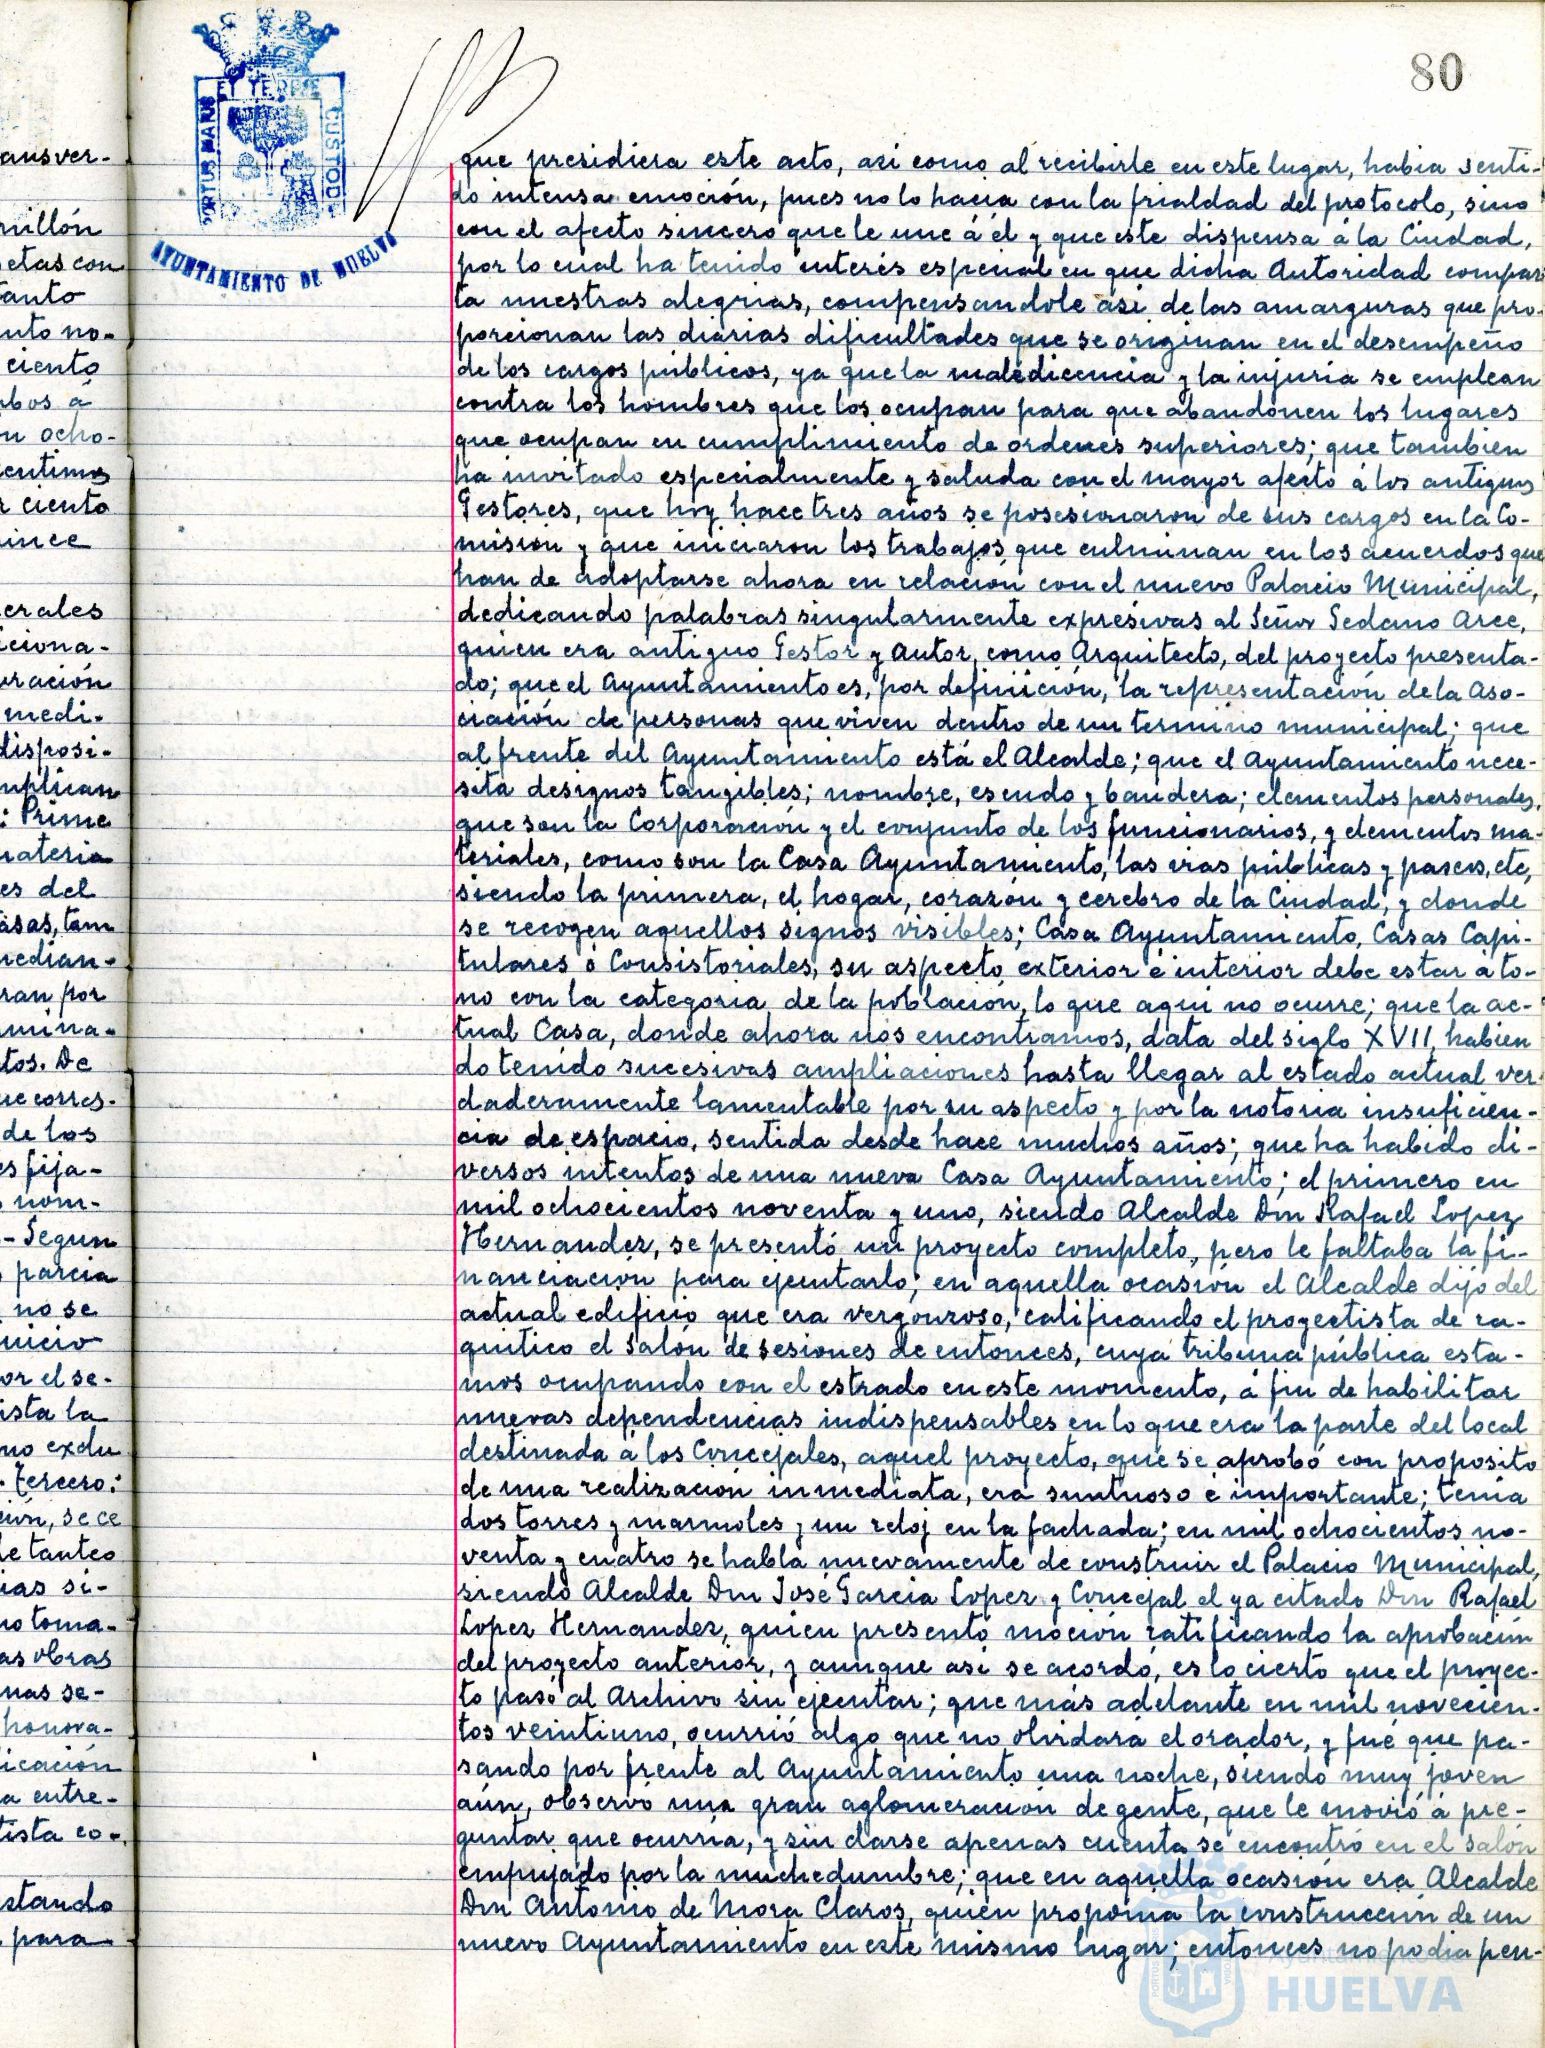 80
ET TERRE
PORTUS MARIS
CUSTOD
AYUNTAMIENTO DE HUELVA
que presidiera este acto, asi como al recibirle en este lugar, habia senti-
do intensa emoción, pues no lo hacia con la frialdad del protocolo, sino
con el afecto sincero que le une á él y que este dispensa á la Ciudad,
por lo cual ha tenido interés especial en que dicha Autoridad compar
ta nuestras alegrias, compensandole asi de las amarguras que pro-
porcionan las diarias dificultades que se originan en el desempeño
de los cargos públicos, ya que la maledicencia y la injuria se emplean
contra los hombres que los ocupan para que abandonen los lugares
que ocupan en cumplimiento de ordenes superiores; que tambien
ha invitado especialmente y saluda con el mayor afecto á los antiguos
Gestores, que hoy hace tres años se posesionaron de sus cargos en la Co-
misión y que iniciaron los trabajos que culminan en los acuerdos que
han de adoptarse ahora en relación con el nuevo Palacio Municipal,
dedicando palabras singularmente expresivas al Señor Sedano Arce,
quien era antiguo Gestor y Autor, como Arquitecto, del proyecto presenta-
do; que el Ayuntamiento es, por definición, la representación de la Aso-
ciación de personas que viven dentro de un termino municipal; que
al frente del Ayuntamiento está el Alcalde; que el Ayuntamiento nece-
sita designos tangibles; nombre, escudo y bandera; elementos personales,
que son la Corporación y el conjunto de los funcionarios, y elementos ma-
teriales, como son la Casa Ayuntamiento, las vias públicas y paseos, etc,
siendo la primera, el hogar, corazón y cerebro de la Ciudad, y donde
se recogen aquellos signos visibles; Casa Ayuntamiento, Casas Capi-
tulares ó Consistoriales, su aspecto exterior é interior debe estar á to-
no con la categoria de la población, lo que aqui no ocurre; que la ac-
tual Casa, donde ahora nos encontramos, data del siglo XVII, habien
do tenido sucesivas ampliaciones hasta llegar al estado actual ver-
daderamente lamentable por su aspecto y por la notoria insuficien-
cia de espacio, sentida desde hace muchos años; que ha habido di-
versos intentos de una nueva Casa Ayuntamiento; el primero en
mil ochocientos noventa y uno, siendo Alcalde Don Rafael Lopez
Hernandez, se presentó un proyecto completo, pero le faltaba la fi-
nanciación para ejecutarlo; en aquella ocasión el Alcalde dijo del
actual edificio que era vergonzoso, calificando el proyectista de ra-
quitico el Salón de sesiones de entonces, cuya tribuna pública esta-
mos ocupando con el estrado en este momento, á fin de habilitar
nuevas dependencias indispensables en lo que era la parte del local
destinada á los Concejales, aquel proyecto, que se aprobó con proposito
de una realización inmediata, era suntuoso é importante; tenia
dos torres y marmoles y un reloj en la fachada; en mil ochocientos no-
venta y cuatro se habla nuevamente de construir el Palacio Municipal,
siendo Alcalde Don José Garcia Lopez y Concejal el ya citado Don Rafael
Lopez Hernandez, quien presentó moción ratificando la aprobación
del proyecto anterior, y aunque asi se acordó, es lo cierto que el proyec-
to pasó al Archivo sin ejecutar; que más adelante en mil novecien-
tos veintiuno, ocurrió algo que no olvidará el orador, y fué que pa-
sando por frente al Ayuntamiento una noche, siendo muy joven
aún, observó una gran aglomeración de gente, que le movió á pre-
guntar que ocurria, y sin darse apenas cuenta se encontró en el salón
empujado por la muchedumbre; que en aquella ocasión era Alcalde
Don Antonio de Mora Claros, quien proponia la construcción de un
nuevo Ayuntamiento en este mismo lugar; entonces no podia pen-
Ayuntamiento de
HUELVA